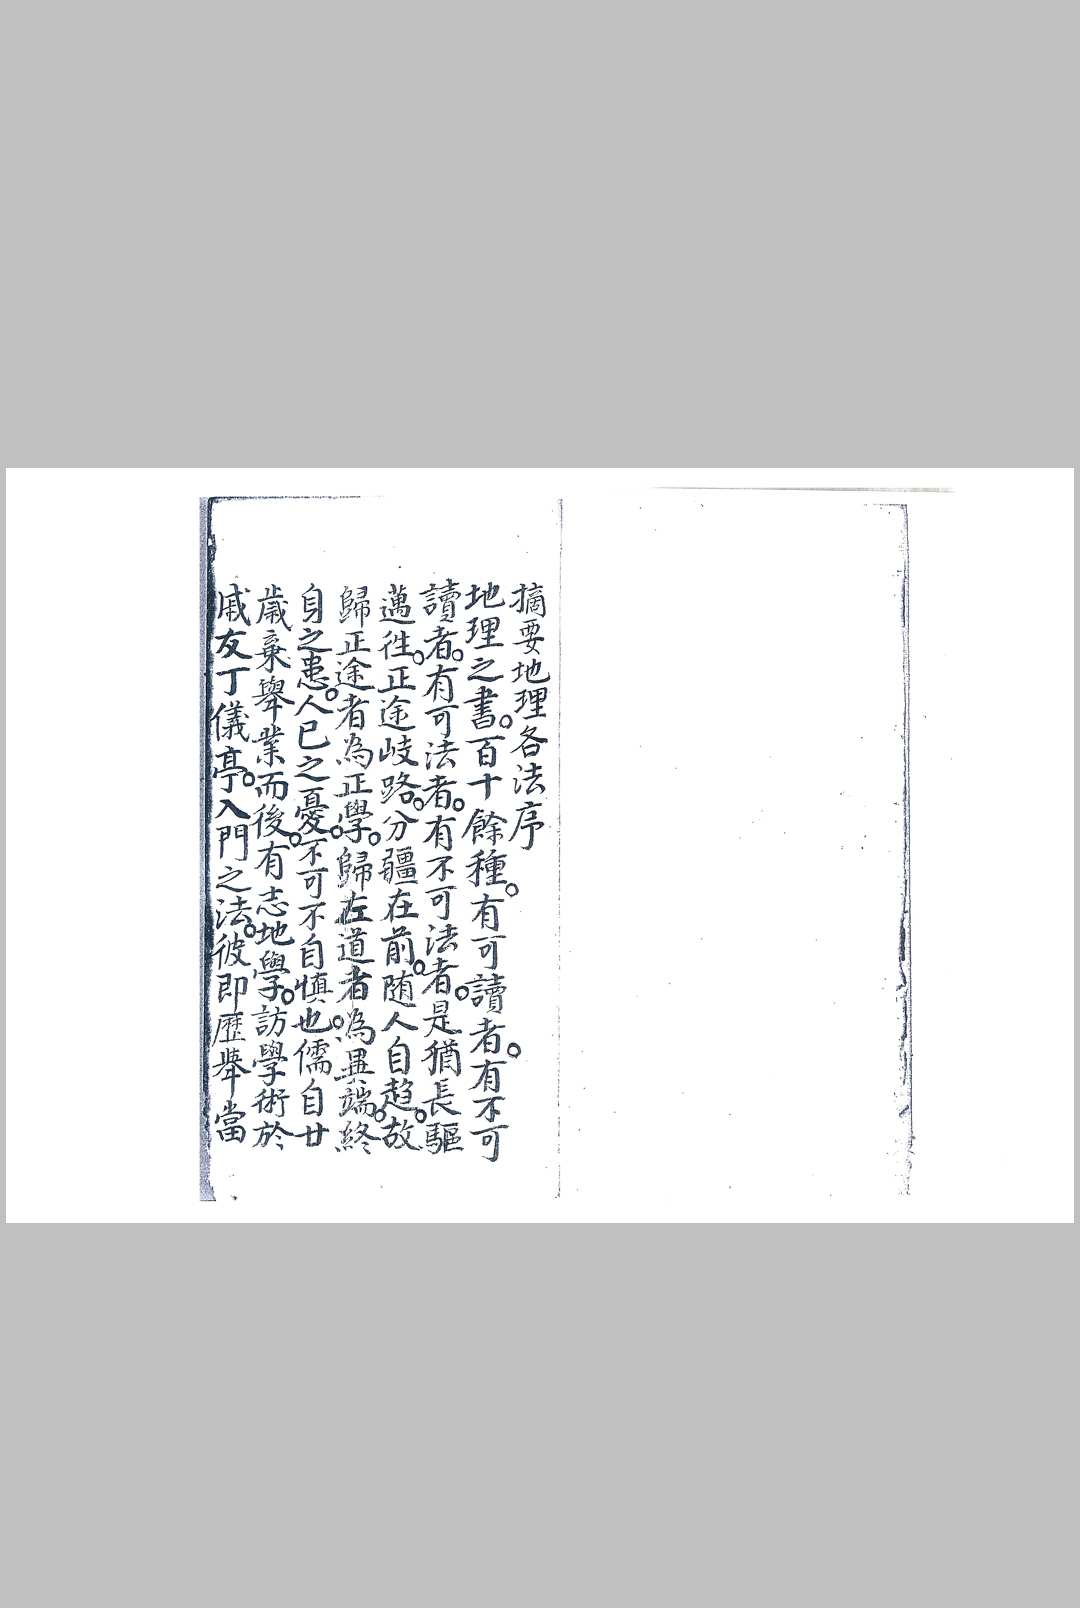 摘要地理各法序
地理之書。百十餘種。有可讀者。有不可
讀者。有可法者。有不可法者。是猶長驅
邁徃。正途岐路。分疆在前。随人自趋。故
歸正途者為正學。歸左道者。為異端。終
身之患。人已之憂。不可不自慎也儒自廿
歲棄舉業而後。有志地學。訪學術於
戚友丁儀亭。入門之法。彼即歷舉當